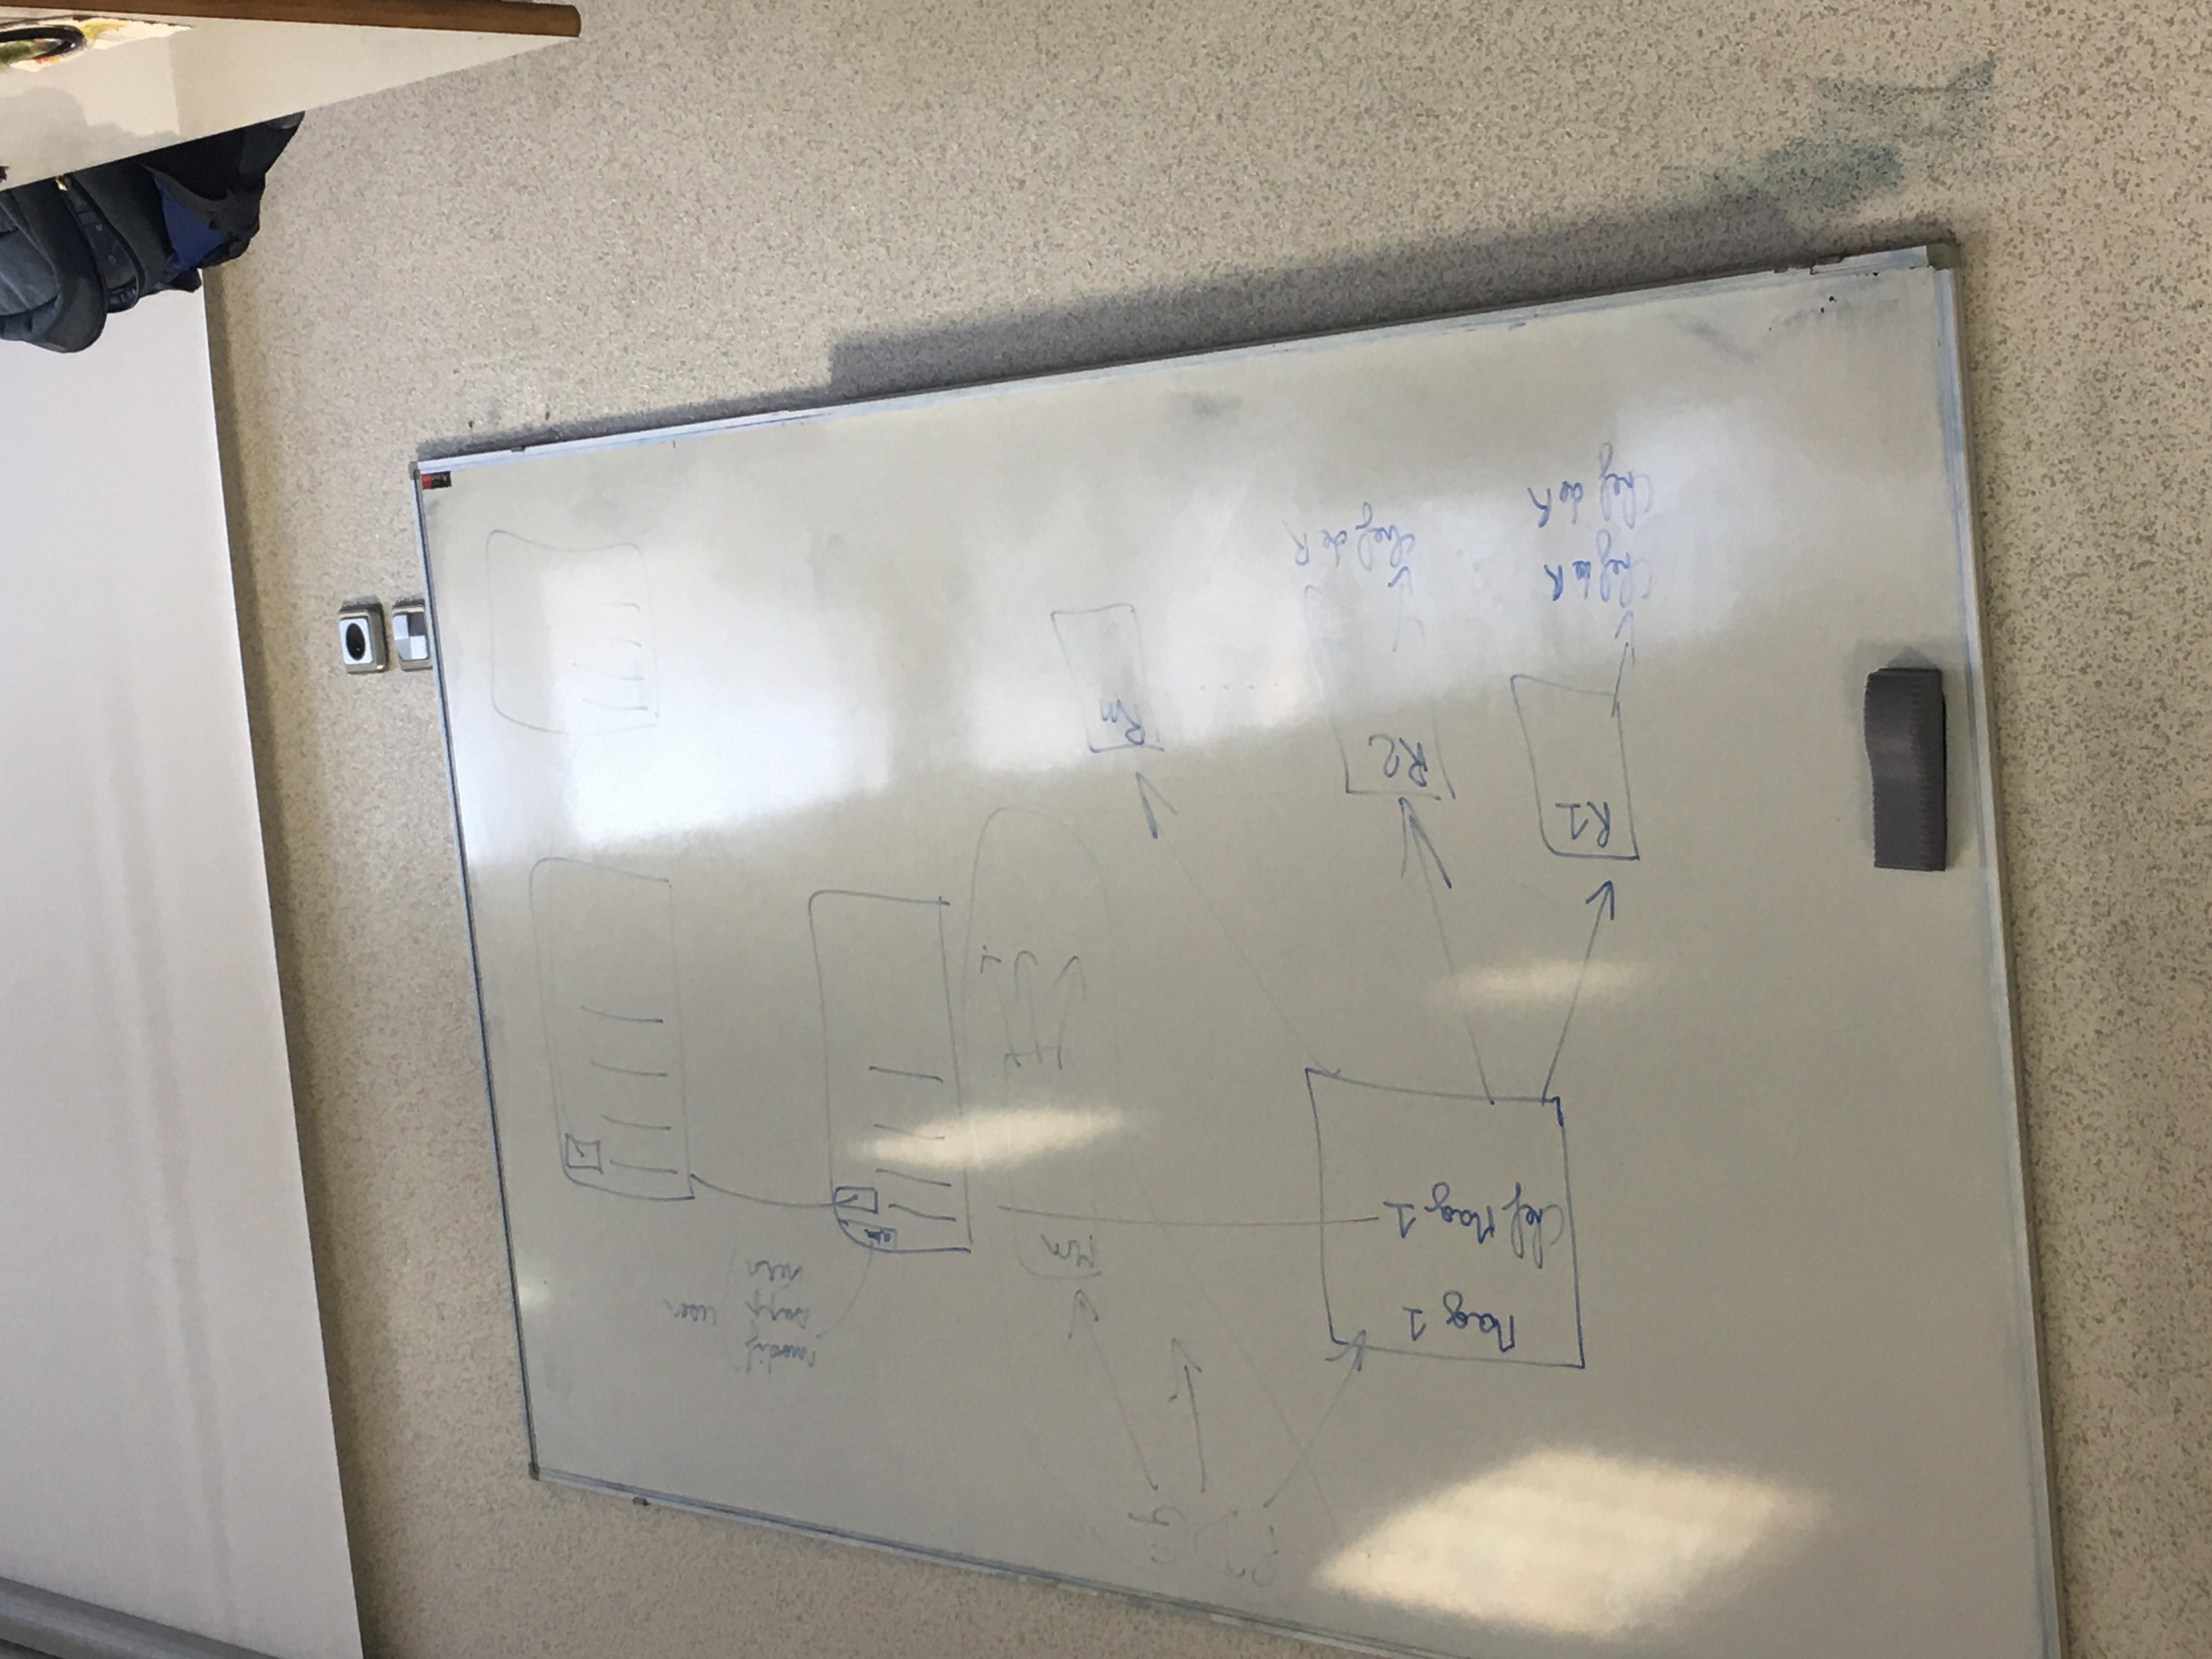 PDG
Mag 1
Chef Mag 1
Mn
modif
supp / user
R1
R2
Rn
...
Chef de R
Chef de R
Chef de R